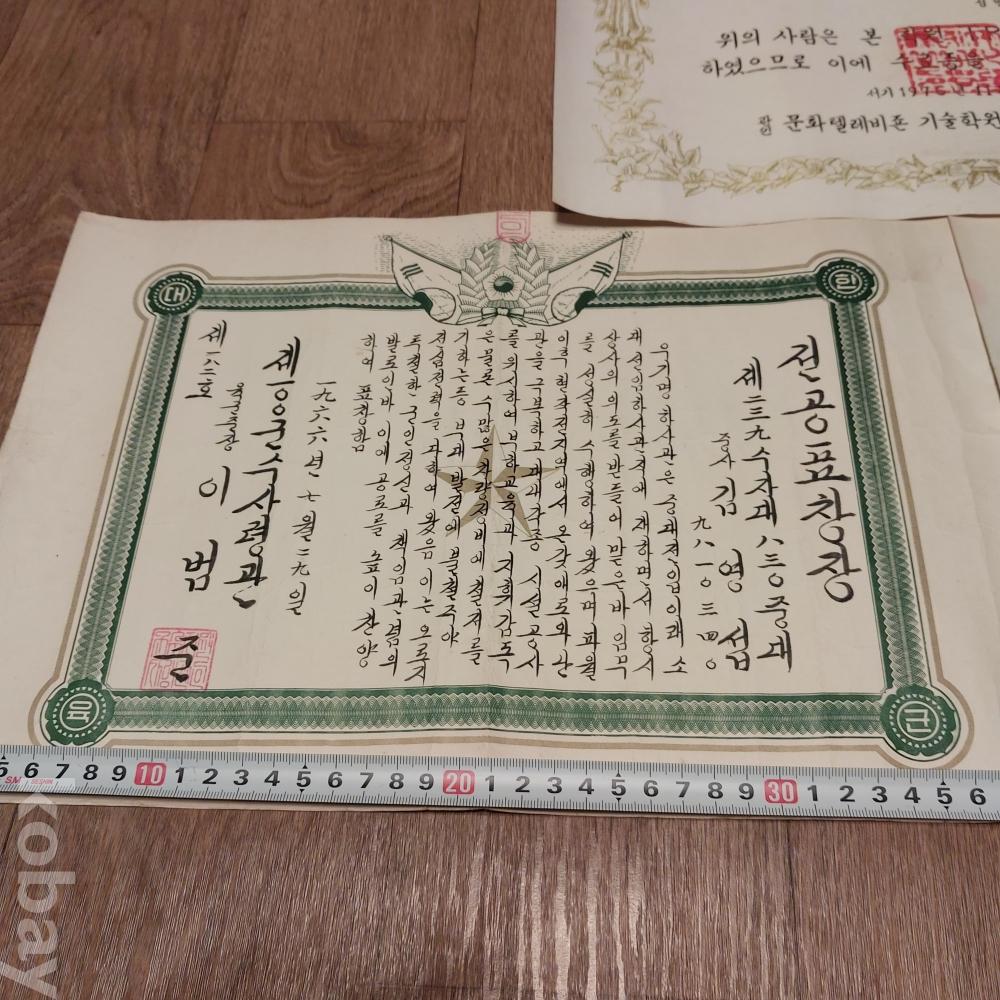 위의 사람은 본
하였으므로 이에
문화텔레비죤 기술학원
대
한
육
군
전공표창장
제二三九수자대 八三○중대
중사 김영섭
九八一○三四○
우기명 하사관은 중대전입이래 소
대 선임하사관직에 재하면서 항시
상사의 의도를 받들어 맡은바 임무
를 성실히 수행하여 왔으며 파월
이후 현작전지역에서 온갖애로와 난
관을 극복하고 대내 각종 시설공사
를 위시하여 부하교육과 지휘감독
은 물론 수많은 차량정비에 철저를
기하는등 부대 발전에 불철주야
전심전력을 다하여 왔음 이는 오로지
투철한 군인정신과 책임관념의
발로인바 이에 공로를 높이 찬양
하여 표창함
一九六六년 七월 二九일
제一○○군수사령관
육군준장 이범준
제一八二호
5 6 7 8 9 10 1 2 3 4 5 6 7 8 9 20 1 2 3 4 5 6 7 8 9 30 1 2 3 4 5 6
kobay